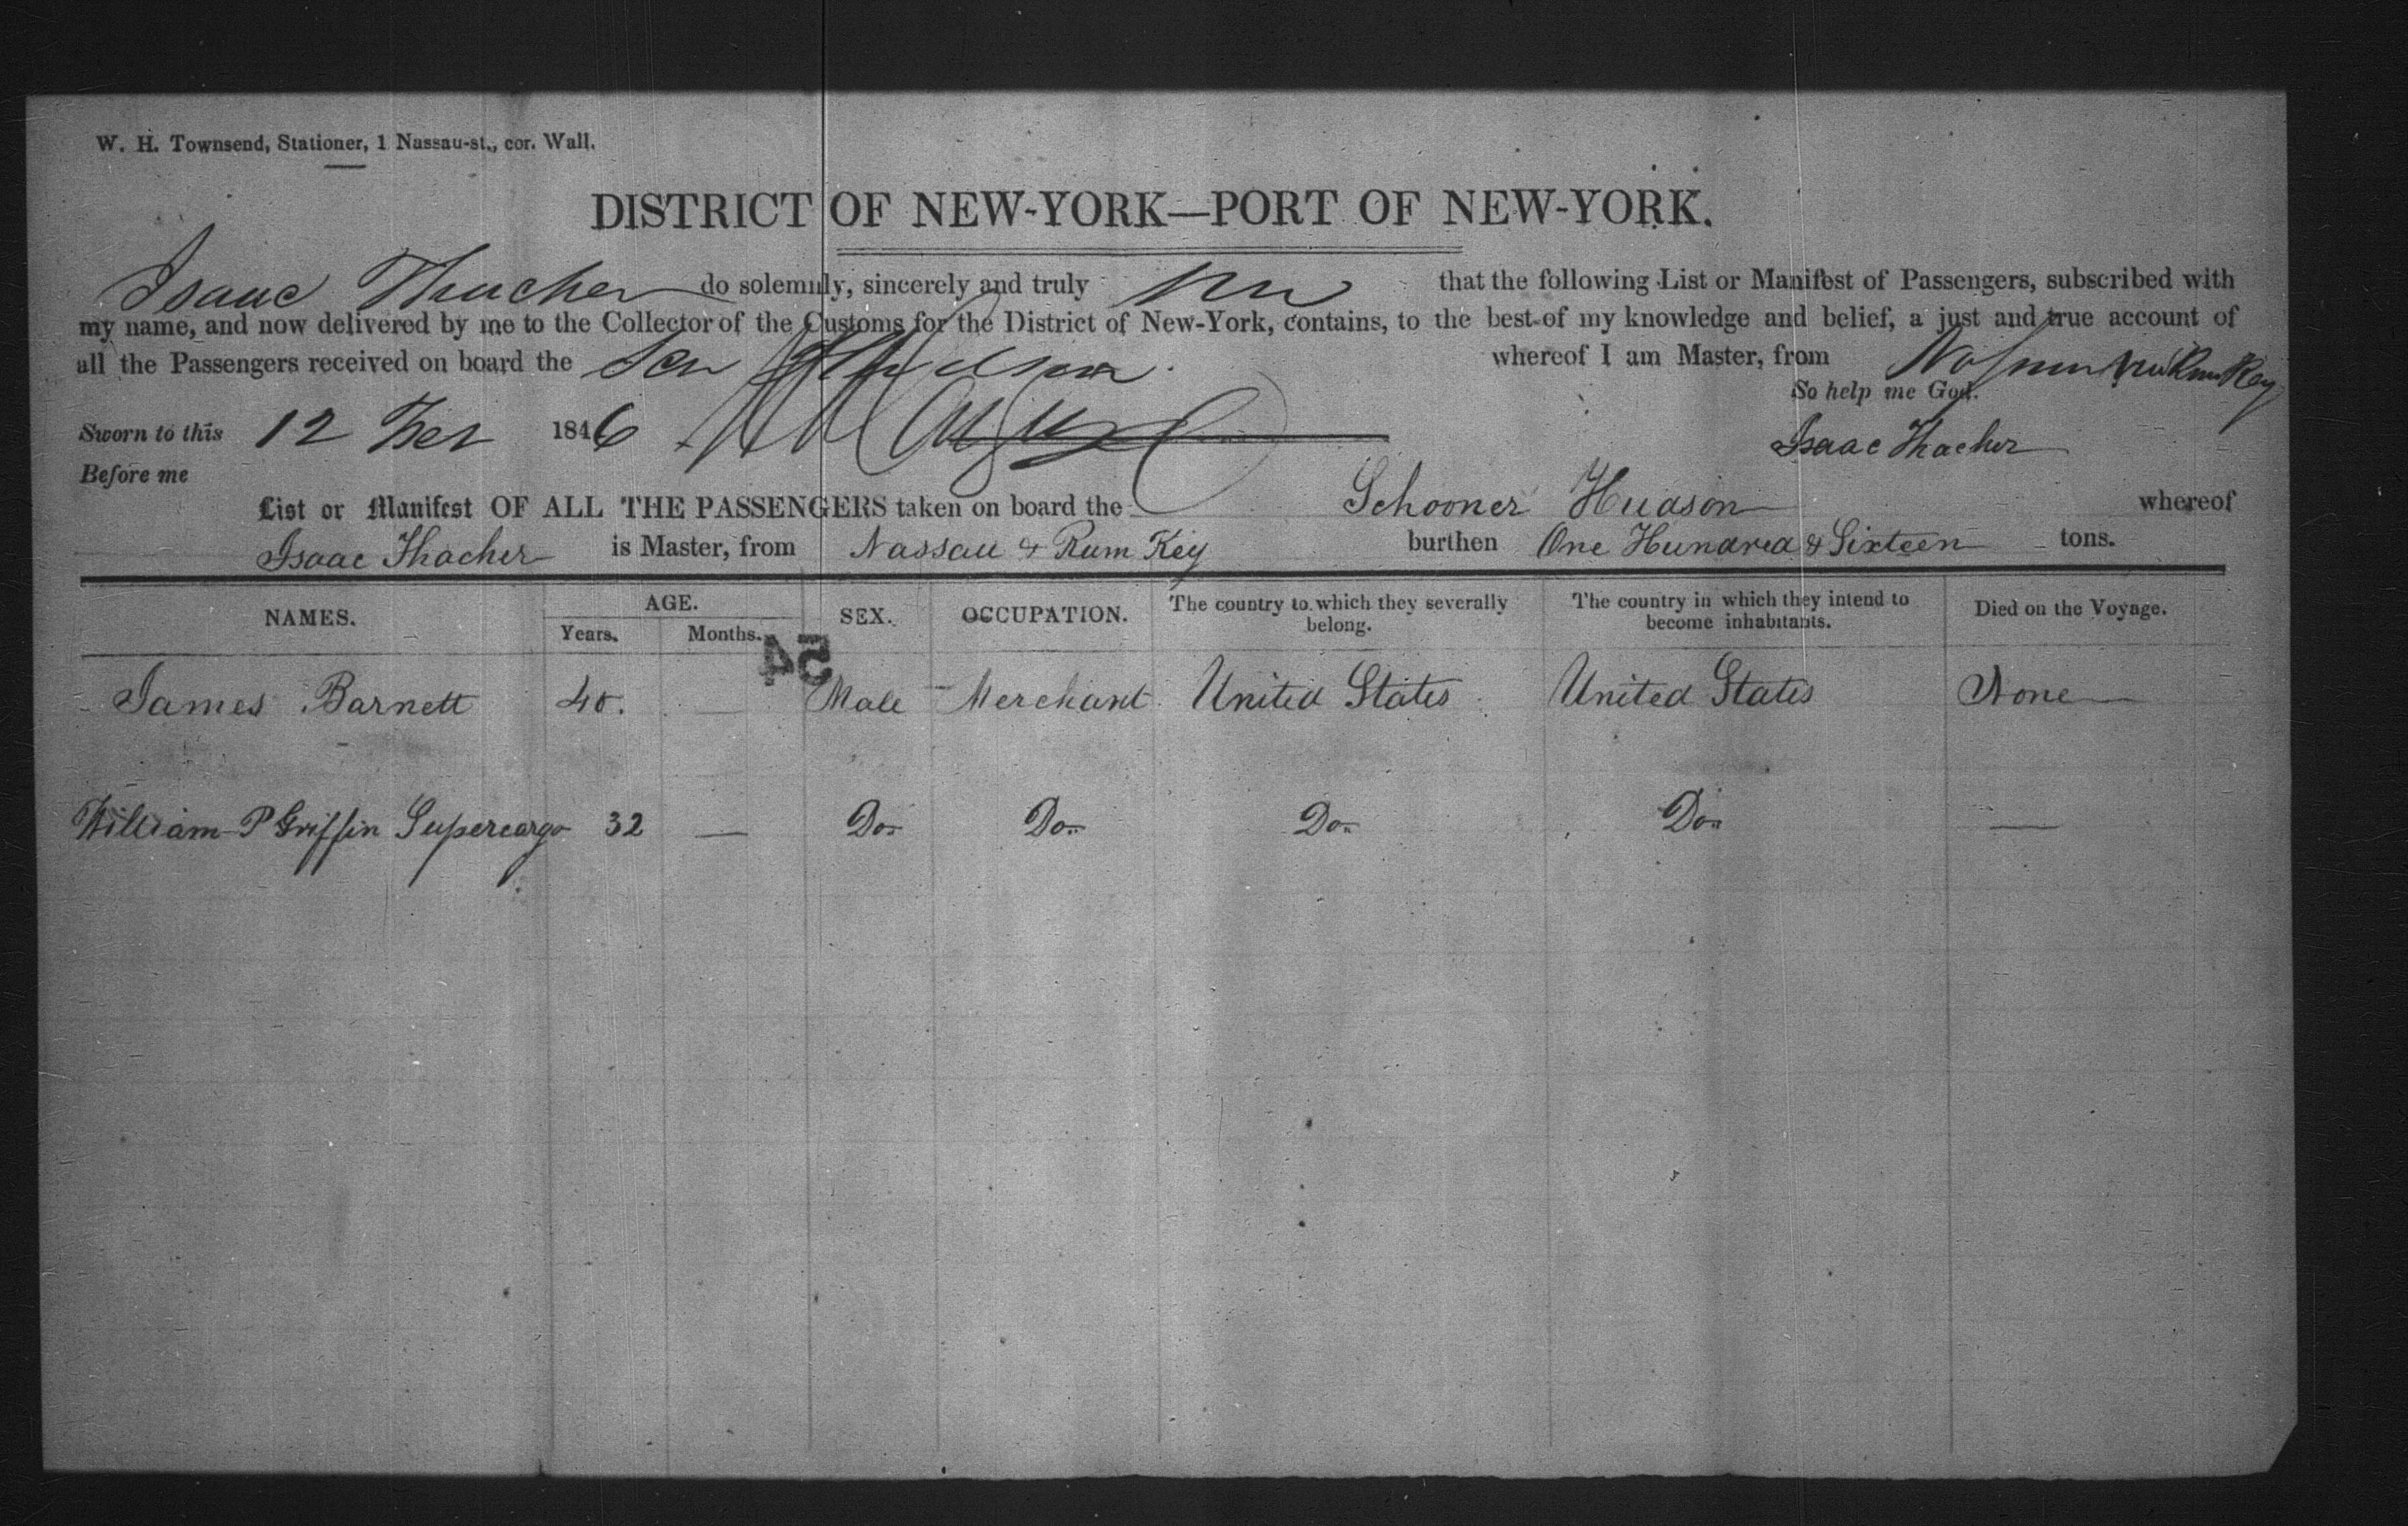 W. H. Townsend, Stationer, 1 Nassau-st., cor. Wall.
DISTRICT OF NEW-YORK—PORT OF NEW-YORK.
Isaac Thacher do solemnly, sincerely and truly that the following List or Manifest of Passengers, subscribed with
my name, and now delivered by me to the Collector of the Customs for the District of New-York, contains, to the best of my knowledge and belief, a just and true account of
all the Passengers received on board the Sch Hudson whereof I am Master, from Nassau Rum Key
So help me God.
Sworn to this 12 Feb 1846 Isaac Thacher
Before me
List or Manifest OF ALL THE PASSENGERS taken on board the Schooner Hudson whereof
Isaac Thacher is Master, from Nassau & Rum Key burthen One Hundred & Sixteen tons.
NAMES. AGE. Years. Months. SEX. OCCUPATION. The country to which they severally belong. The country in which they intend to become inhabitants. Died on the Voyage.
54
James Barnett 40. — Male Merchant United States United States None
William P Griffin Supercargo 32 — Do Do Do Do —